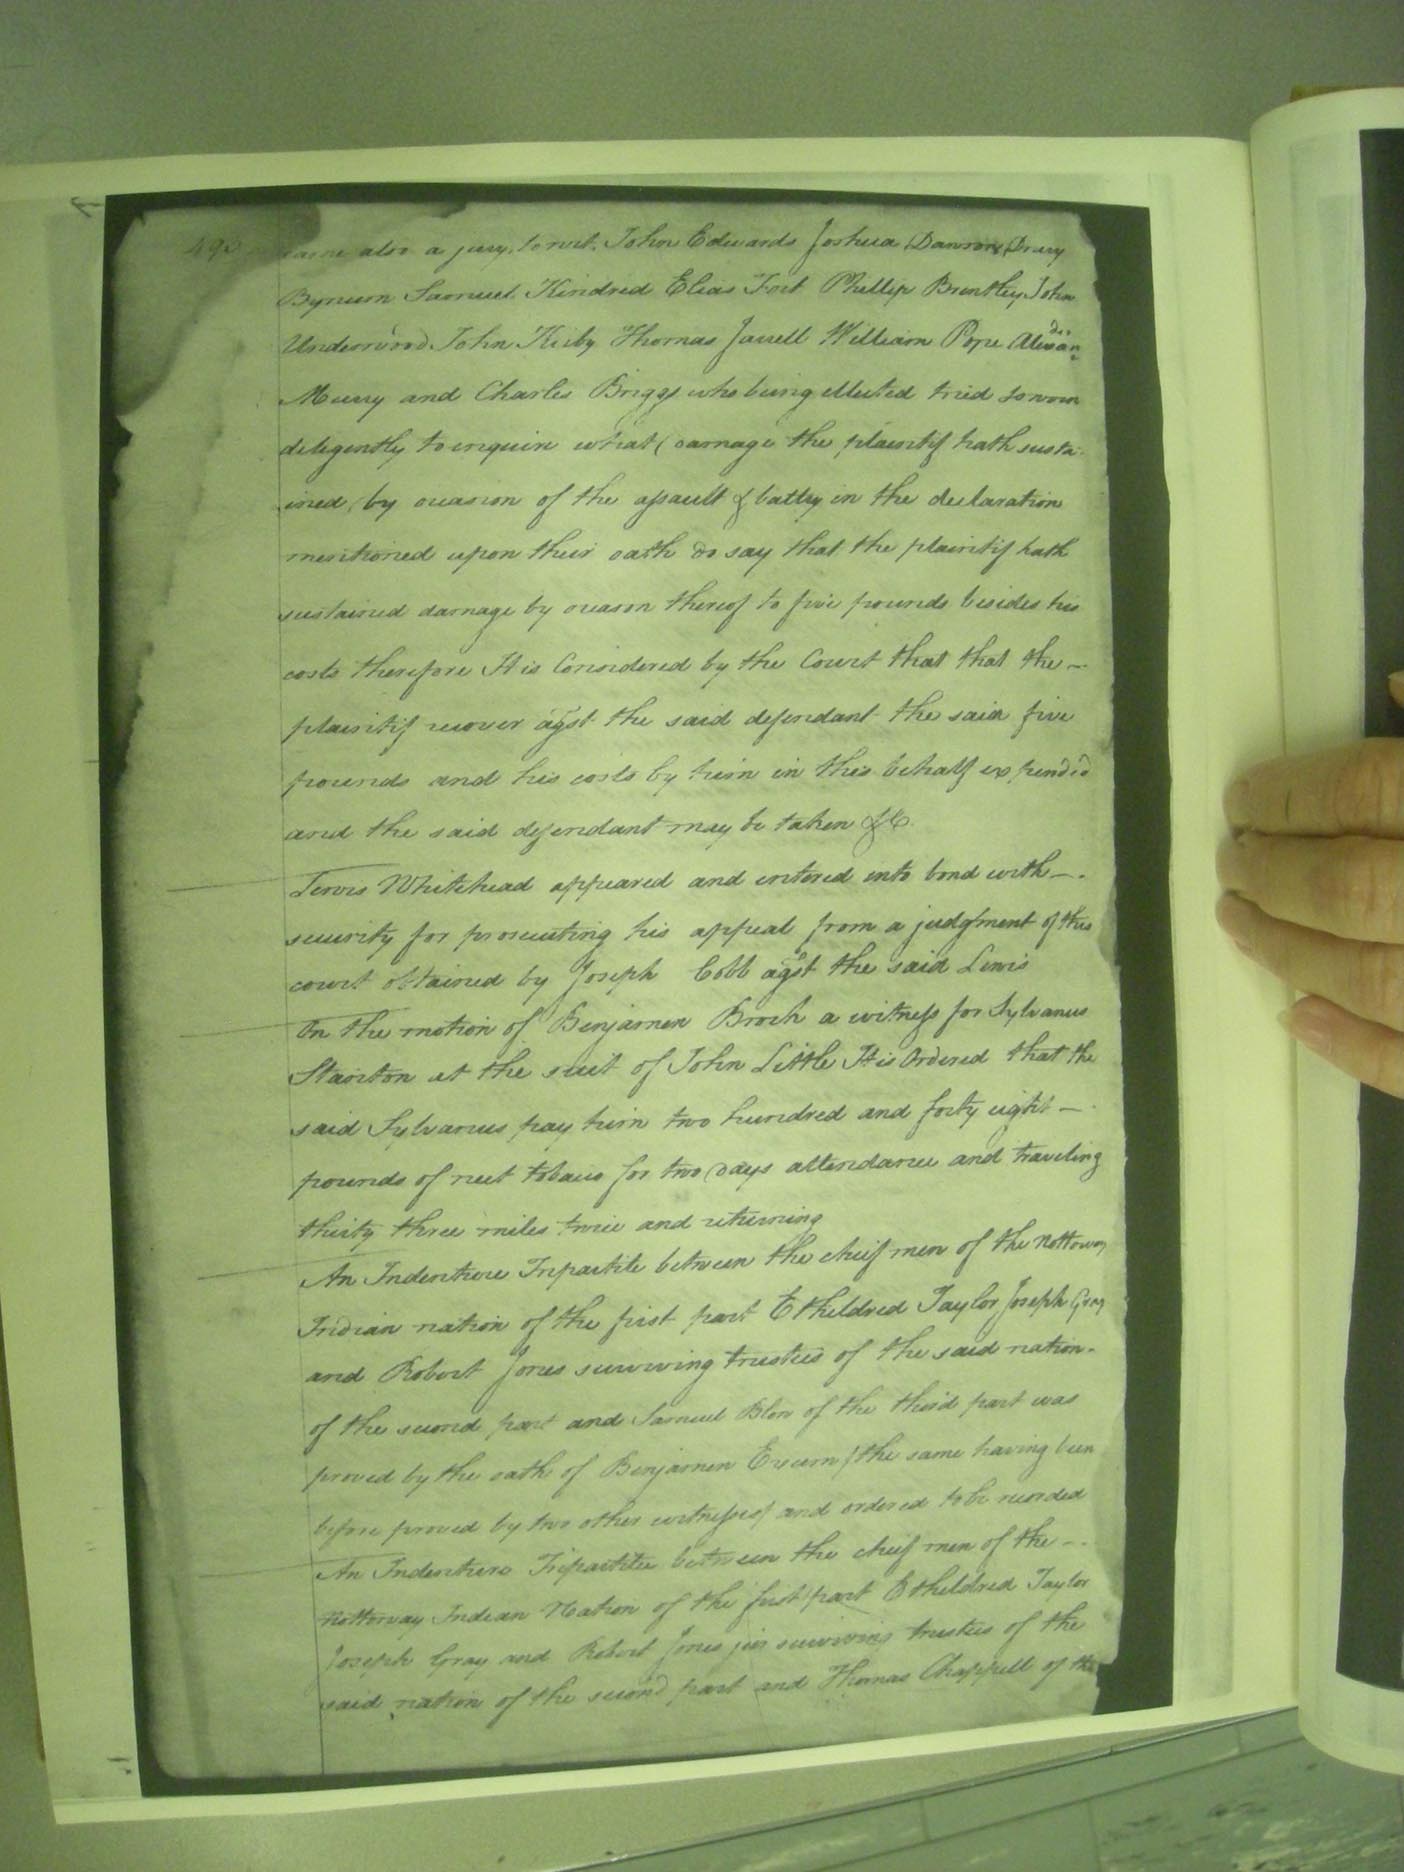 490 came also a jury, towit, John Edwards Joshua Dawson Drury
Bynum Samuel Kindred Elias Fort Phillip Brantley John
Underwood John Kirby Thomas Jarrell William Pope Alexan
Murry and Charles Briggs who being ellected tried sworn
delegently to inquire what damage the plaintif hath susta-
ined by ocasion of the assault & battry in the declaration
mentioned upon their oath do say that the plaintif hath
sustained damage by ocason thereof to five pounds besides his
costs therefore It is Considered by the Court that that the —
plaintif recover agst the said defendant the said five
pounds and his costs by him in this behalf expended
and the said defendant may be taken &C
Lewis Whitehead appeared and entered into bond with —
security for prosecuting his appeal from a judgment of this
court obtained by Joseph Cobb agst the said Lewis
On the motion of Benjamen Broch a witness for Sylvanus
Stanton at the suit of John Little It is Ordered that the
said Sylvanus pay him two hundred and forty eight —
pounds of neet tobaco for two days attendance and traveling
thirty three miles twice and returning
An Indenture Tripartite between the chief men of the Nottoway
Indian nation of the first part Etheldred Taylor Joseph Gray
and Robert Jones surviving trustees of the said nation
of the second part and Samuel Blow of the third part was
proved by the oath of Benjamen Exum (the same having been
before proved by two other witnesses) and ordered to be recorded
An Indenture Tripartite between the chief men of the —
Nottoway Indian Nation of the first part Etheldred Taylor
Joseph Gray and Robert Jones jur surviving trustees of the
said nation of the second part and Thomas Chappell of the